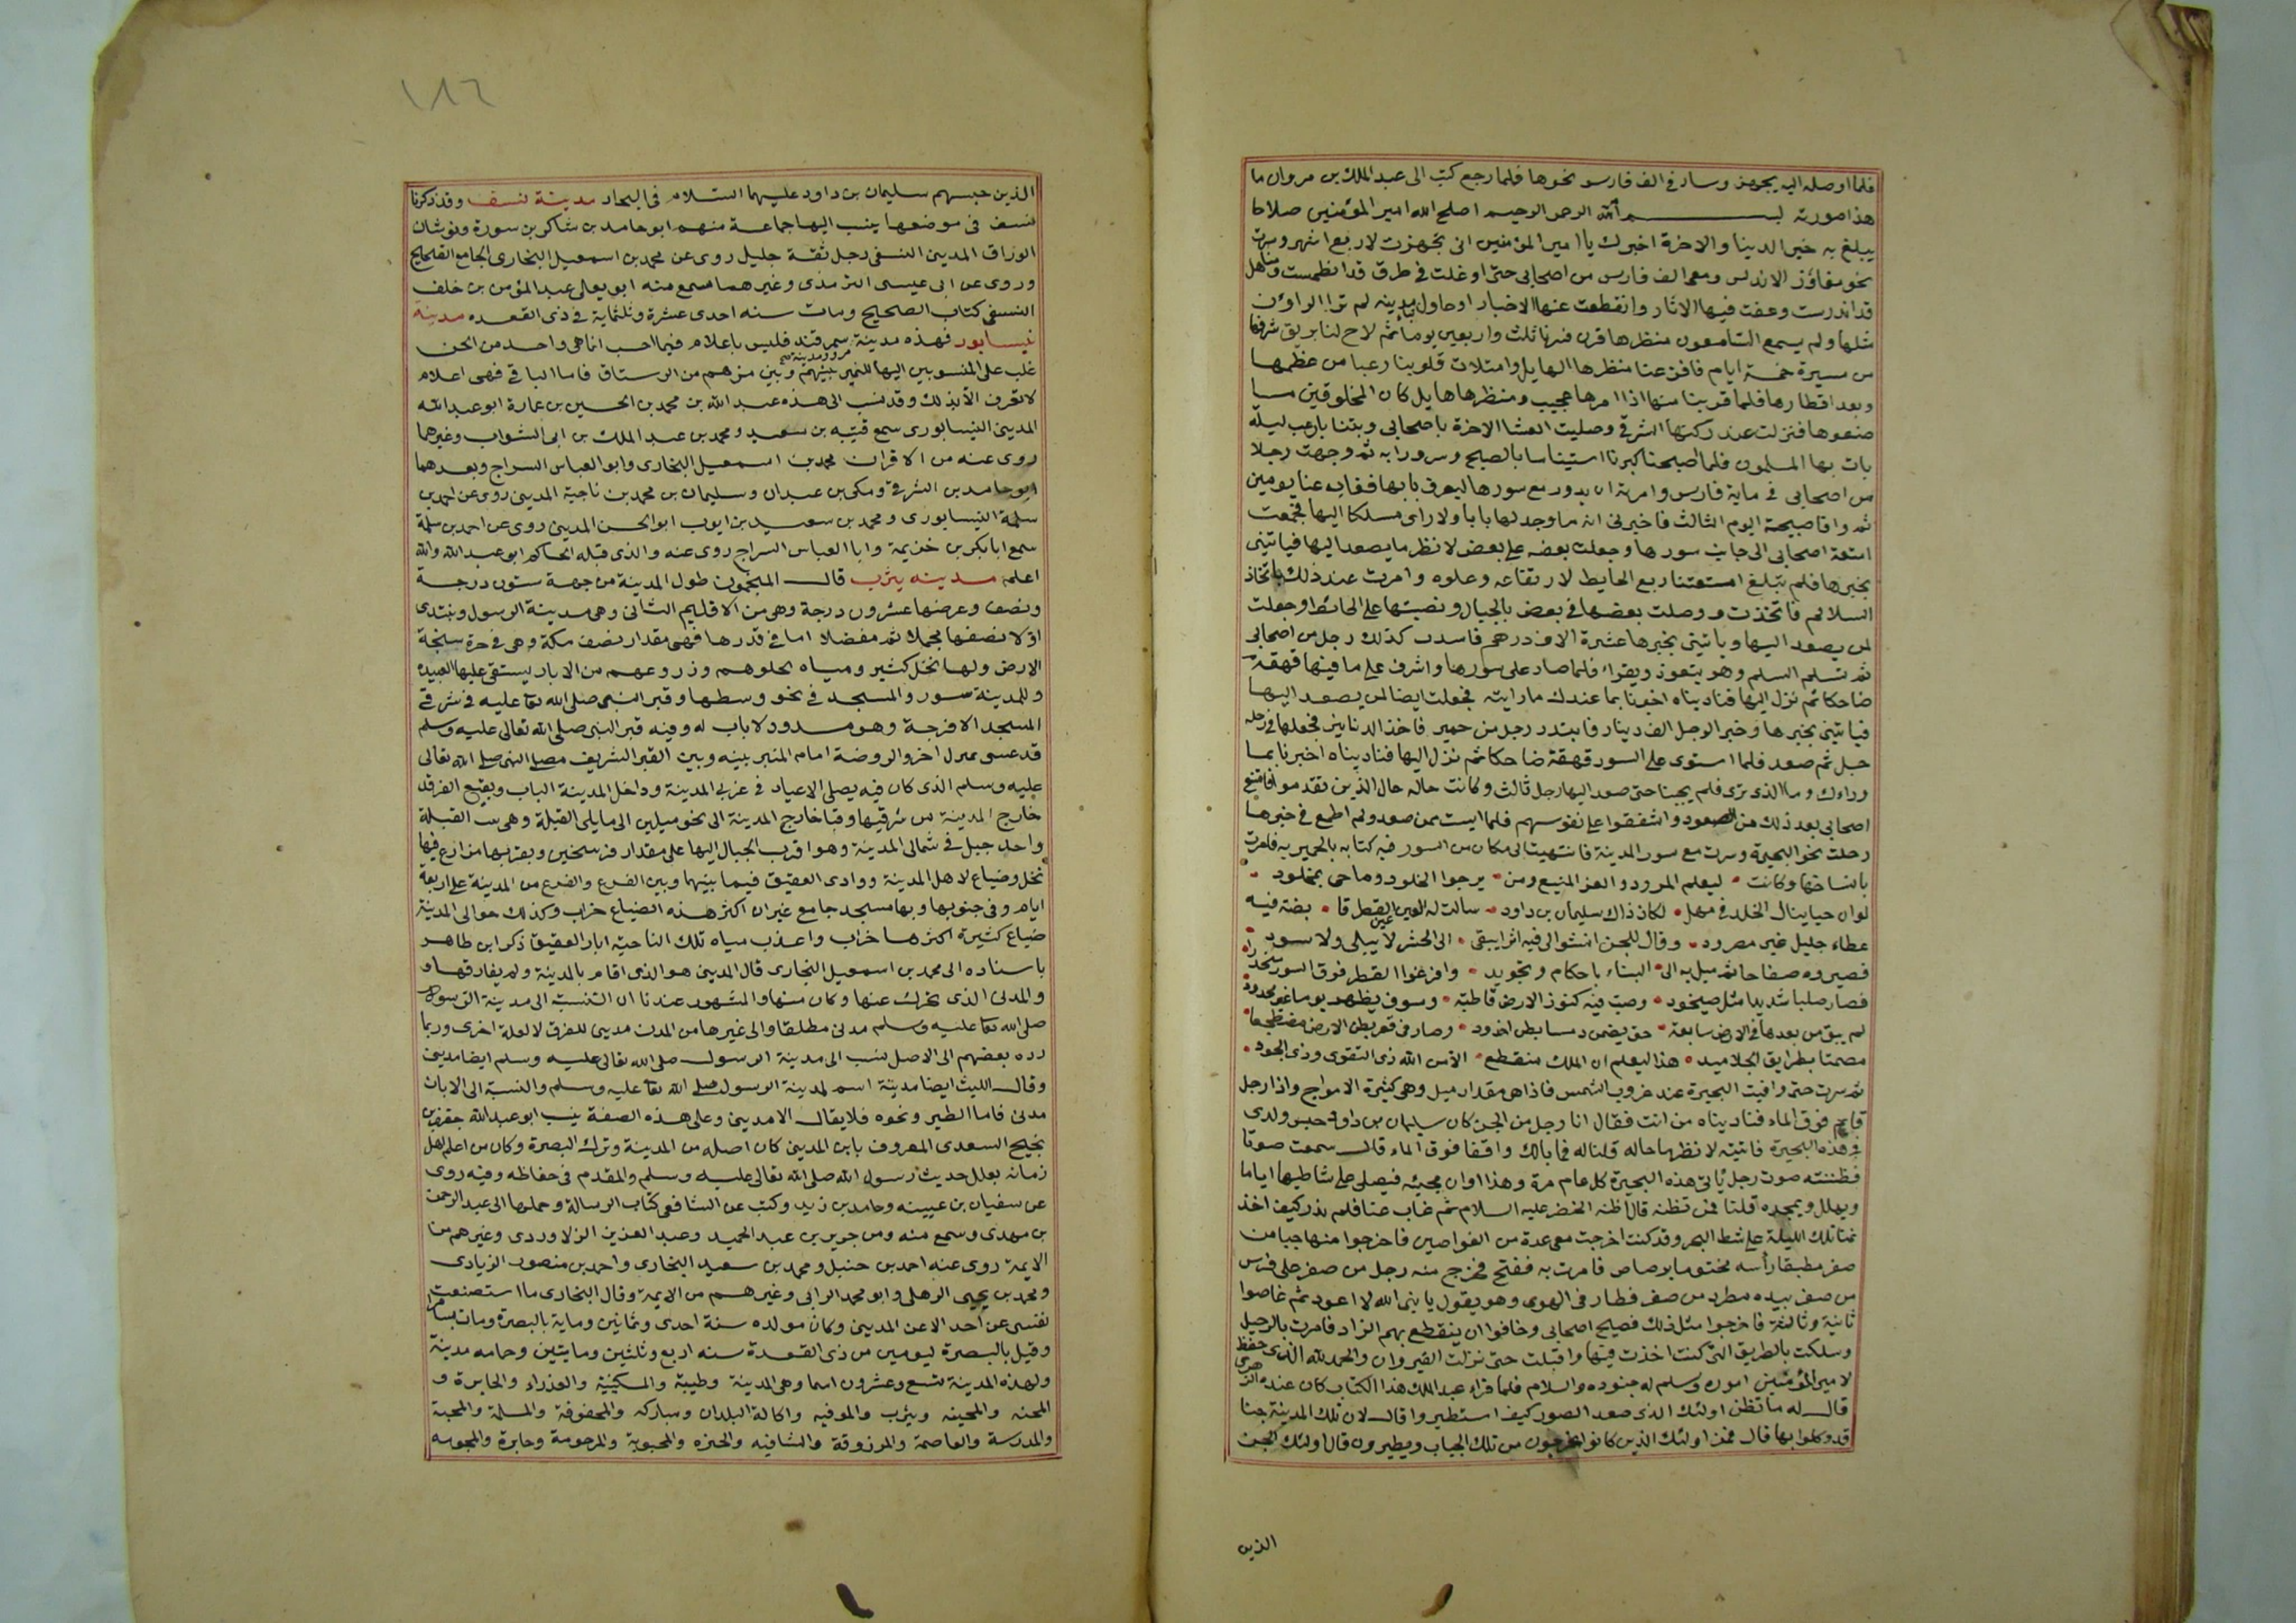 فلما اوصله اليه يجوهز وسار في الف فارس نحوها فلما رجع كتب الى عبد الملك بن مروان ما
هذا صورته بسم الله الرحمن الرحيم اصلح الله امير المؤمنين صلاحا
يبلغ به خير الدينا والاخرة اخبرك يا امير المؤمنين انى تجهزت لاربع اشهر وسرت
نحو مفاوز الاندلس ومعى الف فارس من اصحابى حتى اوغلت في طرق قد انطمست ومناهل
قد اندرست وعفت فيها الاثار وانقطعت عنها الاخبار احاول مدينه لم ير الراؤن
مثلها ولم يسمع السامعون بمنظرها فسرنا ثلث واربعين يوما ثم لاح لنا بريق شرفها
من مسيرة خمسة ايام فافزعنا منظرها الهايل وامتلات قلوبنا رعبا من عظمها
وبعد اقطارها فلما قربنا منها اذا امرها عجيب ومنظرها هايل كان المخلوقين ما
صنعوها فنزلت عند ركنها الشرقي وصليت العشا الاخرة باصحابي وبتنا بارعب ليلة
بات بها المسلمون فلما اصبحنا كبرنا استيناسا بالصبح وسرورا به ثم وجهت رجلا
من اصحابي في ماية فارس وامرته ان يدور مع سورها ليعرف بابها فغاب عنا يومين
ثم وافا صبيحة اليوم الثالث فاخبرنى انه ما وجد لها بابا ولا راى مسلكا اليها فجمعت
امتعة اصحابى الى جانب سورها وجعلت بعضه على بعض لانظر ما يصعد اليها فياتينى
بخبرها فلم تبلغ امتعتنا ربع الحايط لارتقاعه وعلوه وامرت عند ذلك باتخاذ
السلالم فاتخذت ووصلت بعضها في بعض بالجبال ونصبتها على الحائط وجعلت
لمن يصعد اليها وياتينى بخبرها عشرة الاف درهم فانتدب لذلك رجل من اصحابى
ثم تسلم السلم وهو يتعوذ ويقراء فلما صار على سورها واشرف على ما فيها قهقه
ضاحكا ثم نزل اليها فناديناه اخبرنا بما عندك ما رايته فجعلت ايضا لمن يصعد اليها
فياتينى بخبرها وخبر الرجل الف دينار فابتدر رجل من حمير فاخذ الدنانير فجعلها في رحله
جبل ثم صعد فلما استوى على السور قهقه ضاحكا ثم نزل اليها فناديناه اخبرنا بما
وراءك وما الذى ترى فلم يجبنا حتى صعد اليها رجل ثالث وكانت حاله حال الذين تقدموا فامتنع
اصحابى بعد ذلك من الصعود واشفقوا على نفوسهم فلما ايست ممن صعد ولم اطمع في خبرها
رحلت نحو البحيرة وسرت مع سور المدينة فانتهيت الى مكان من السور فيه كتابه بالحميريه فامرت
بانتساخها وكانت ليعلم المرء ذو العز المنيع ومن يرجوا الخلود وما حى بمخلود
لو ان حيا ينال الخلد في مهل لكان ذاك سليمان بن داود سالت له العين عين القطر قا بضة فيه
عطاء جليل غير مصرود وقال للجن انشوا لى فيه اثرا يبقى الى الحشر لا يبلى ولا يسود
فصيروه صفاحا ثم ميل به الى البناء باحكام وتجويد وافرغوا القطر فوق السور منحدرا
فصار صلبا شديدا مثل صيخود وصب فيه كنوز الارض قاطبة وسوف يظهر يوما غير محدود
لم يبق من بعدها في الارض سابغة حتى يضمن رمسا بطن اخدود وصار في قعر بطن الارض مضطجعا
مصمتا بطرايق الجلاميد هذا ليعلم ان الملك منقطع الا من الله ذى التقوى وذى الجود
ثم سرت حتى وافيت البحيرة عند غروب الشمس فاذا هى مقدار ميل وهى كثيرة الامواج واذا رجل
قايم فوق الماء فناديناه من انت فقال انا رجل من الجن كان سليمان بن داود حبس ولدى
في هذه البحيرة فاتيته لانظر ما حاله قلنا له فما بالك واقفا فوق الماء قال سمعت صوتا
فظننته صوت رجل ياتى هذه البحيرة كل عام مرة وهذا اوان مجيئه فيصلى على شاطيها اياما
ويهلل ويمجده قلنا فمن تظنه قال اظنه الخضر عليه السلام ثم غاب عنا فلم ندر كيف اخذ
فبتنا تلك الليلة على شط البحر وقد كنت اخرجت معى عدة من الغواصين فاخرجوا منها حبا من
صفر مطبقا راسه مختوما برصاص فامرت به ففتح فخرج منه رجل من صفر على فرس
من صفر بيده مطرد من صفر فطار في الهوى وهو يقول يا نبى الله لا اعود ثم غاصوا
ثانية وثالثة فاخرجوا مثل ذلك فضج اصحابى وخافوا ان ينقطع بهم الزاد فامرت بالرحيل
وسلكت بالطريق التى كنت اخذت فيها واقبلت حتى نزلت القيروان والحمد لله الذى حفظ
لامير المؤمنين اموره وسلم له جنوده والسلام فلما قراء عبد الملك هذا الكتاب كان عنده الزهرى
قال له ما تظن اولئك الذى صعد السور كيف استطيروا قال لان تلك المدينة جنا
قد وكلوا بها قال فمن اولئك الذين كانوا يخرجون من تلك الجباب ويطيرون قال اولئك الجن
الذين
١٨٦
الذين حبسهم سليمان بن داود عليهما السلام في البحار مدينة نسف وقد ذكرنا
نسف في موضعها ينسب اليها جماعة منهم ابو حامد بن شاكر بن سورة ونوشان
الوراق المدينى النسفى رجل ثقة جليل روى عن محمد بن اسمعيل البخارى الجامع الصحيح
وروى عن ابى عيسى الترمذى وغيرهما سمع منه ابو يعلى عبد المؤمن بن خلف
النسفى كتاب الصحيح ومات سنه احدى عشرة وثلثماية في ذى القعده مدينة
نيسابور فهذه مدينة سمرقند فليس باعلام فيما احب انما هى واحد من الحن
مرو ومدينة صح
غلب على المنسوبين اليها للتميز بينهم وبين من هم من الرستاق فاما الباقى فهى اعلام
لا تعرف الا بذلك وقد نسب الى هذه عبد الله بن محمد بن الحسين بن عمارة ابو عبد الله
المدينى النيسابورى سمع قتيبه بن سعيد ومحمد بن عبد الملك بن ابى الشواب وغيرهما
روى عنه من الاقران محمد بن اسمعيل البخارى وابو العباس السراج وبعدهما
ابو حامد بن الشرقي ومكى بن عبدان وسليمان بن محمد بن ناجية المدينى روى عن احمد بن
سلمة النيسابورى ومحمد بن سعيد بن ايوب ابو الحسن المدينى روى عن احمد بن سلمة
سمع ابا بكر بن خزيمة وابا العباس السراج روى عنه والذى قبله الحاكم ابو عبد الله والله
اعلم مدينه يثرب قال المنجمون طول المدينة من جهة ستون درجة
ونصف وعرضها عشرون درجة وهى من الاقليم الثانى وهى مدينة الرسول ونبتدى
اولا نصفها مجملا ثم مفضلا اما في قدرها فهى مقدار نصف مكة وهى في حرة سبخة
الارض ولها نخل كثير ومياه نخلهم وزروعهم من الابار يستقى عليها العبيد
وللمدينة سور والمسجد في نحو وسطها وقبر النبى صلى الله تعا عليه في شرقي
المسجد الا فرجة وهو مسدود لا باب له وفيه قبر النبى صلى الله تعالى عليه وسلم
قد غشى بمنبر اخر والروضة امام المنبر بينه وبين القبر الشريف مصلى النبى صلى الله تعالى
عليه وسلم الذى كان فيه يصلى الاعياد في غربى المدينة وداخل المدينة الباب وبقيع الغرقد
خارج المدينة من شرقيها وقبا خارج المدينة الى نحو ميلين الى ما يلى القبلة وهى القبلة
واحد جبل في شمالى المدينة وهو اقرب الجبال اليها على مقدار فرسخين وبقربها مزارع فيها
نخل وضياع لاهل المدينة ووادى العقيق فيما بينها وبين الفرع والفرع من المدينة على اربعة
ايام وفى جنوبها وبها مسجد جامع غير ان اكثر هذه الضياع خراب وكذلك حوالى المدينة
ضياع كثيرة اكثرها خراب واعذب مياه تلك الناحيه ابار العقيق ذكر ابن طاهر
باسناده الى محمد بن اسمعيل البخارى قال المدينى هو الذى اقام بالمدينة ولم يفارقها و
والمدنى الذى تحول عنها وكان منها والمشهور عندنا ان النسبة الى مدينة الرسول
صلى الله تعا عليه وسلم مدنى مطلقا والى غيرها من المدن مدينى للفرق لا لعلة اخرى وربما
رده بعضهم الى الاصل نسب الى مدينة الرسول صلى الله تعالى عليه وسلم ايضا مدينى
وقال الليث ايضا مدينة اسم لمدينة الرسول صلى الله تعا عليه وسلم والنسبة الى الابان
مدنى فاما الطير ونحوه فلا يقال الا مدينى وعلى هذه الصفة ينسب ابو عبد الله جعفر بن
نجيح السعدى المعروف بابن المدينى كان اصله من المدينة وترك البصرة وكان من اعلم اهل
زمانه بعلل حديث رسول الله صلى الله تعالى عليه وسلم والمقدم فى حفاظه وفيه روى
عن سفيان بن عيينه وحامد بن زيد وكتب عن الشافعى كتاب الرسالة وحملها الى عبد الرحمن
بن مهدى وسمع منه ومن جرير بن عبد الحميد وعبد العزيز الزلاوردى وغيرهم من
الايمة روى عنه احمد بن حنبل ومحمد بن سعيد البخارى واحمد بن منصور الزيادى
ومحمد بن يحيى الزهلى وابو محمد الرابى وغيرهم من الايمة وقال البخارى ما استصغرت
نفسى عن احد الا عن المدينى وكان مولده سنة احدى وثمانين وماية بالبصرة ومات بسامرا
وقيل بالبصرة ليومين من ذى القعدة سنه اربع وثلثين ومايتين وحامه مدينة
ولهذه المدينة تسع وعشرون اسما وهى المدينة وطيبة والمسكينة والعذراء والجابرة و
المحبه والمحببه ويثرب والموفيه واكالة البلدان ومباركه والمحفوفة والمسلمة والمجنة
والمدرسة والعاصمة والمرزوقة والشافيه والحيره والمحبوبة والمرحومة وجابرة والمحبوبه